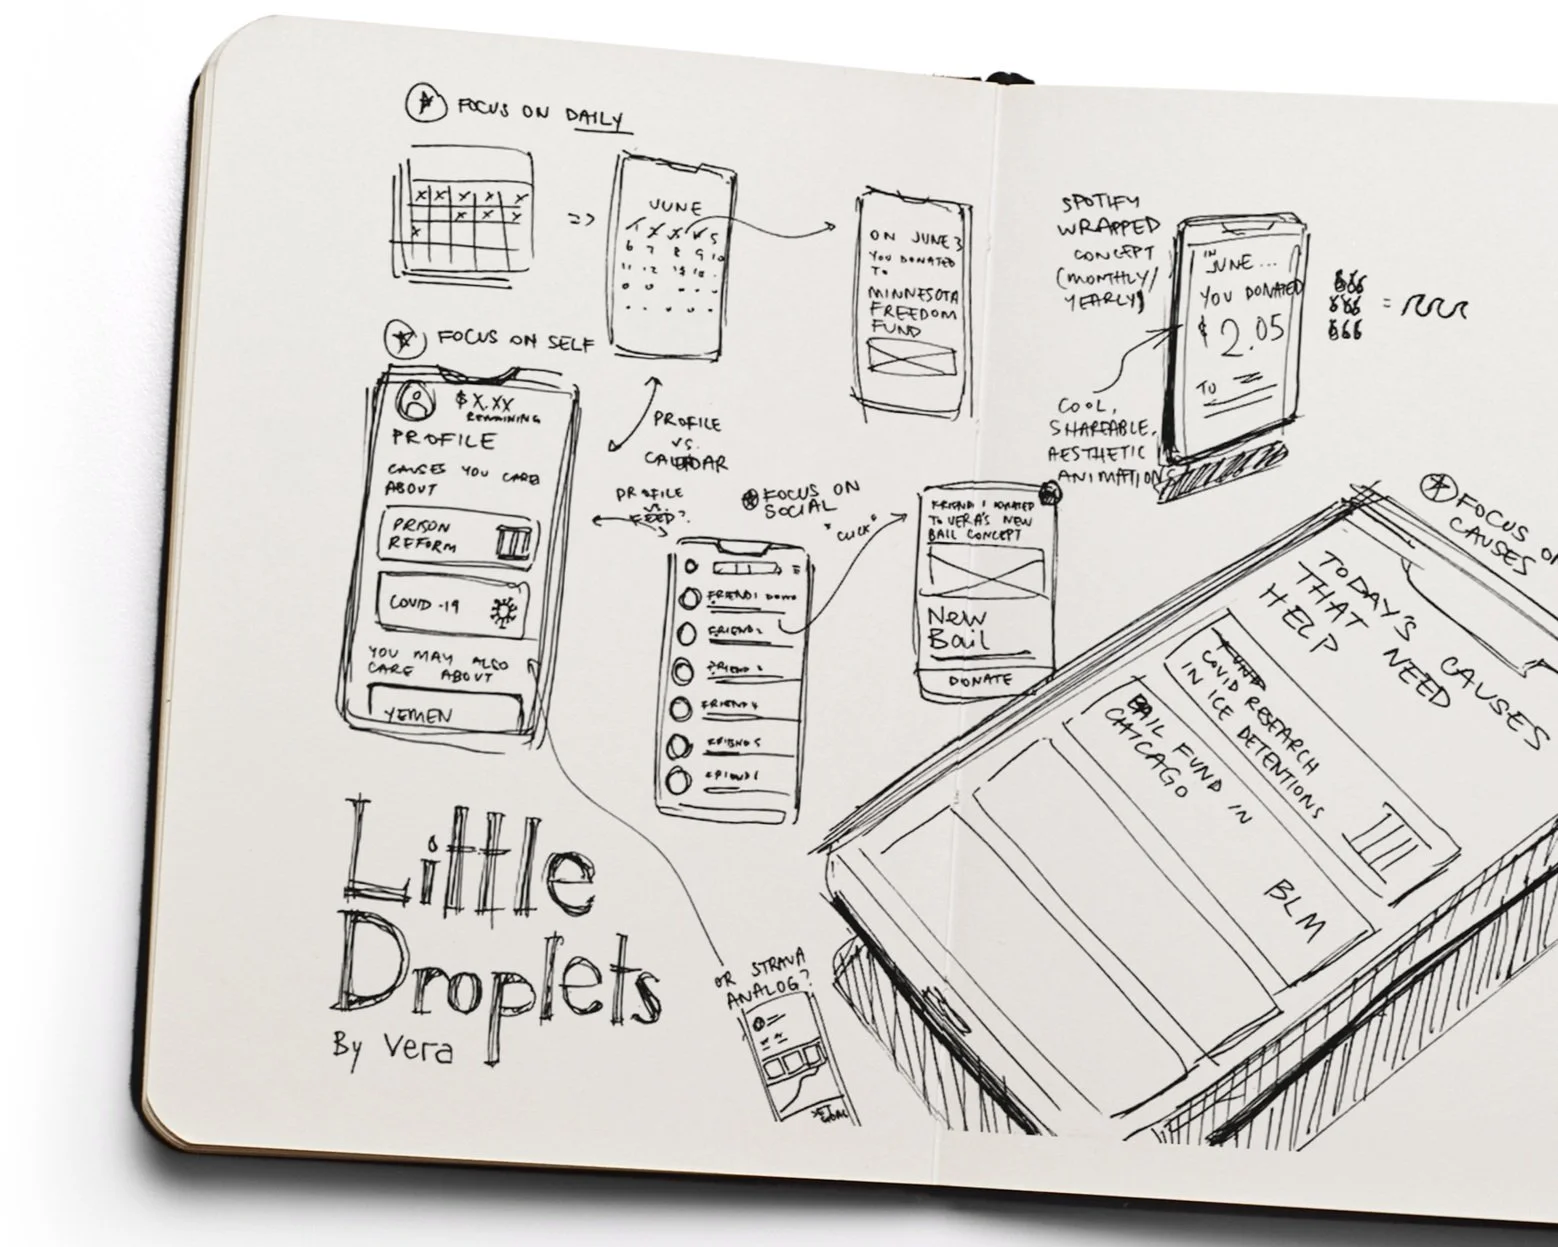 FOCUS ON DAILY
JUNE
1 2 3 4 5
6 7 8 9 10
11 12
ON JUNE 3
YOU DONATED
TO
MINNESOTA
FREEDOM
FUND
SPOTIFY
WRAPPED
CONCEPT
(MONTHLY/
YEARLY)
IN
JUNE...
YOU DONATED
$2.05
TO
=
COOL,
SHAREABLE,
AESTHETIC
ANIMATIONS
FOCUS ON SELF
$X.XX
REMAINING
PROFILE
CAUSES YOU CARE
ABOUT
PRISON
REFORM
COVID-19
YOU MAY ALSO
CARE ABOUT
YEMEN
PROFILE
VS.
CALENDAR
PROFILE
VS.
FEED?
FOCUS ON
SOCIAL
"CLICK"
FRIEND 1
FRIEND 2
FRIEND 3
FRIEND 4
FRIEND 5
FRIEND
FRIEND 1 DONATED
TO VERA'S NEW
BAIL CONCEPT
New
Bail
DONATE
FOCUS ON
CAUSES
TODAY'S CAUSES
THAT NEED
HELP
COVID RESEARCH
IN ICE DETENTIONS
BAIL FUND IN
CHICAGO
BLM
Little
Droplets
By Vera
OR STRAVA
ANALOG?
SET
GOAL